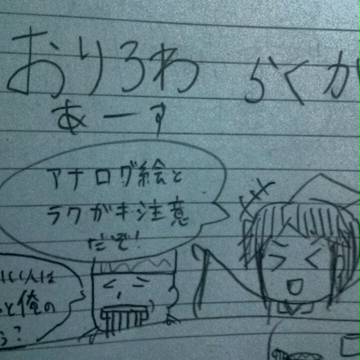 おりろわ らくが
あーす
アナログ絵と
ラクガキ注意
だぞ!
いい人は
と俺の
?